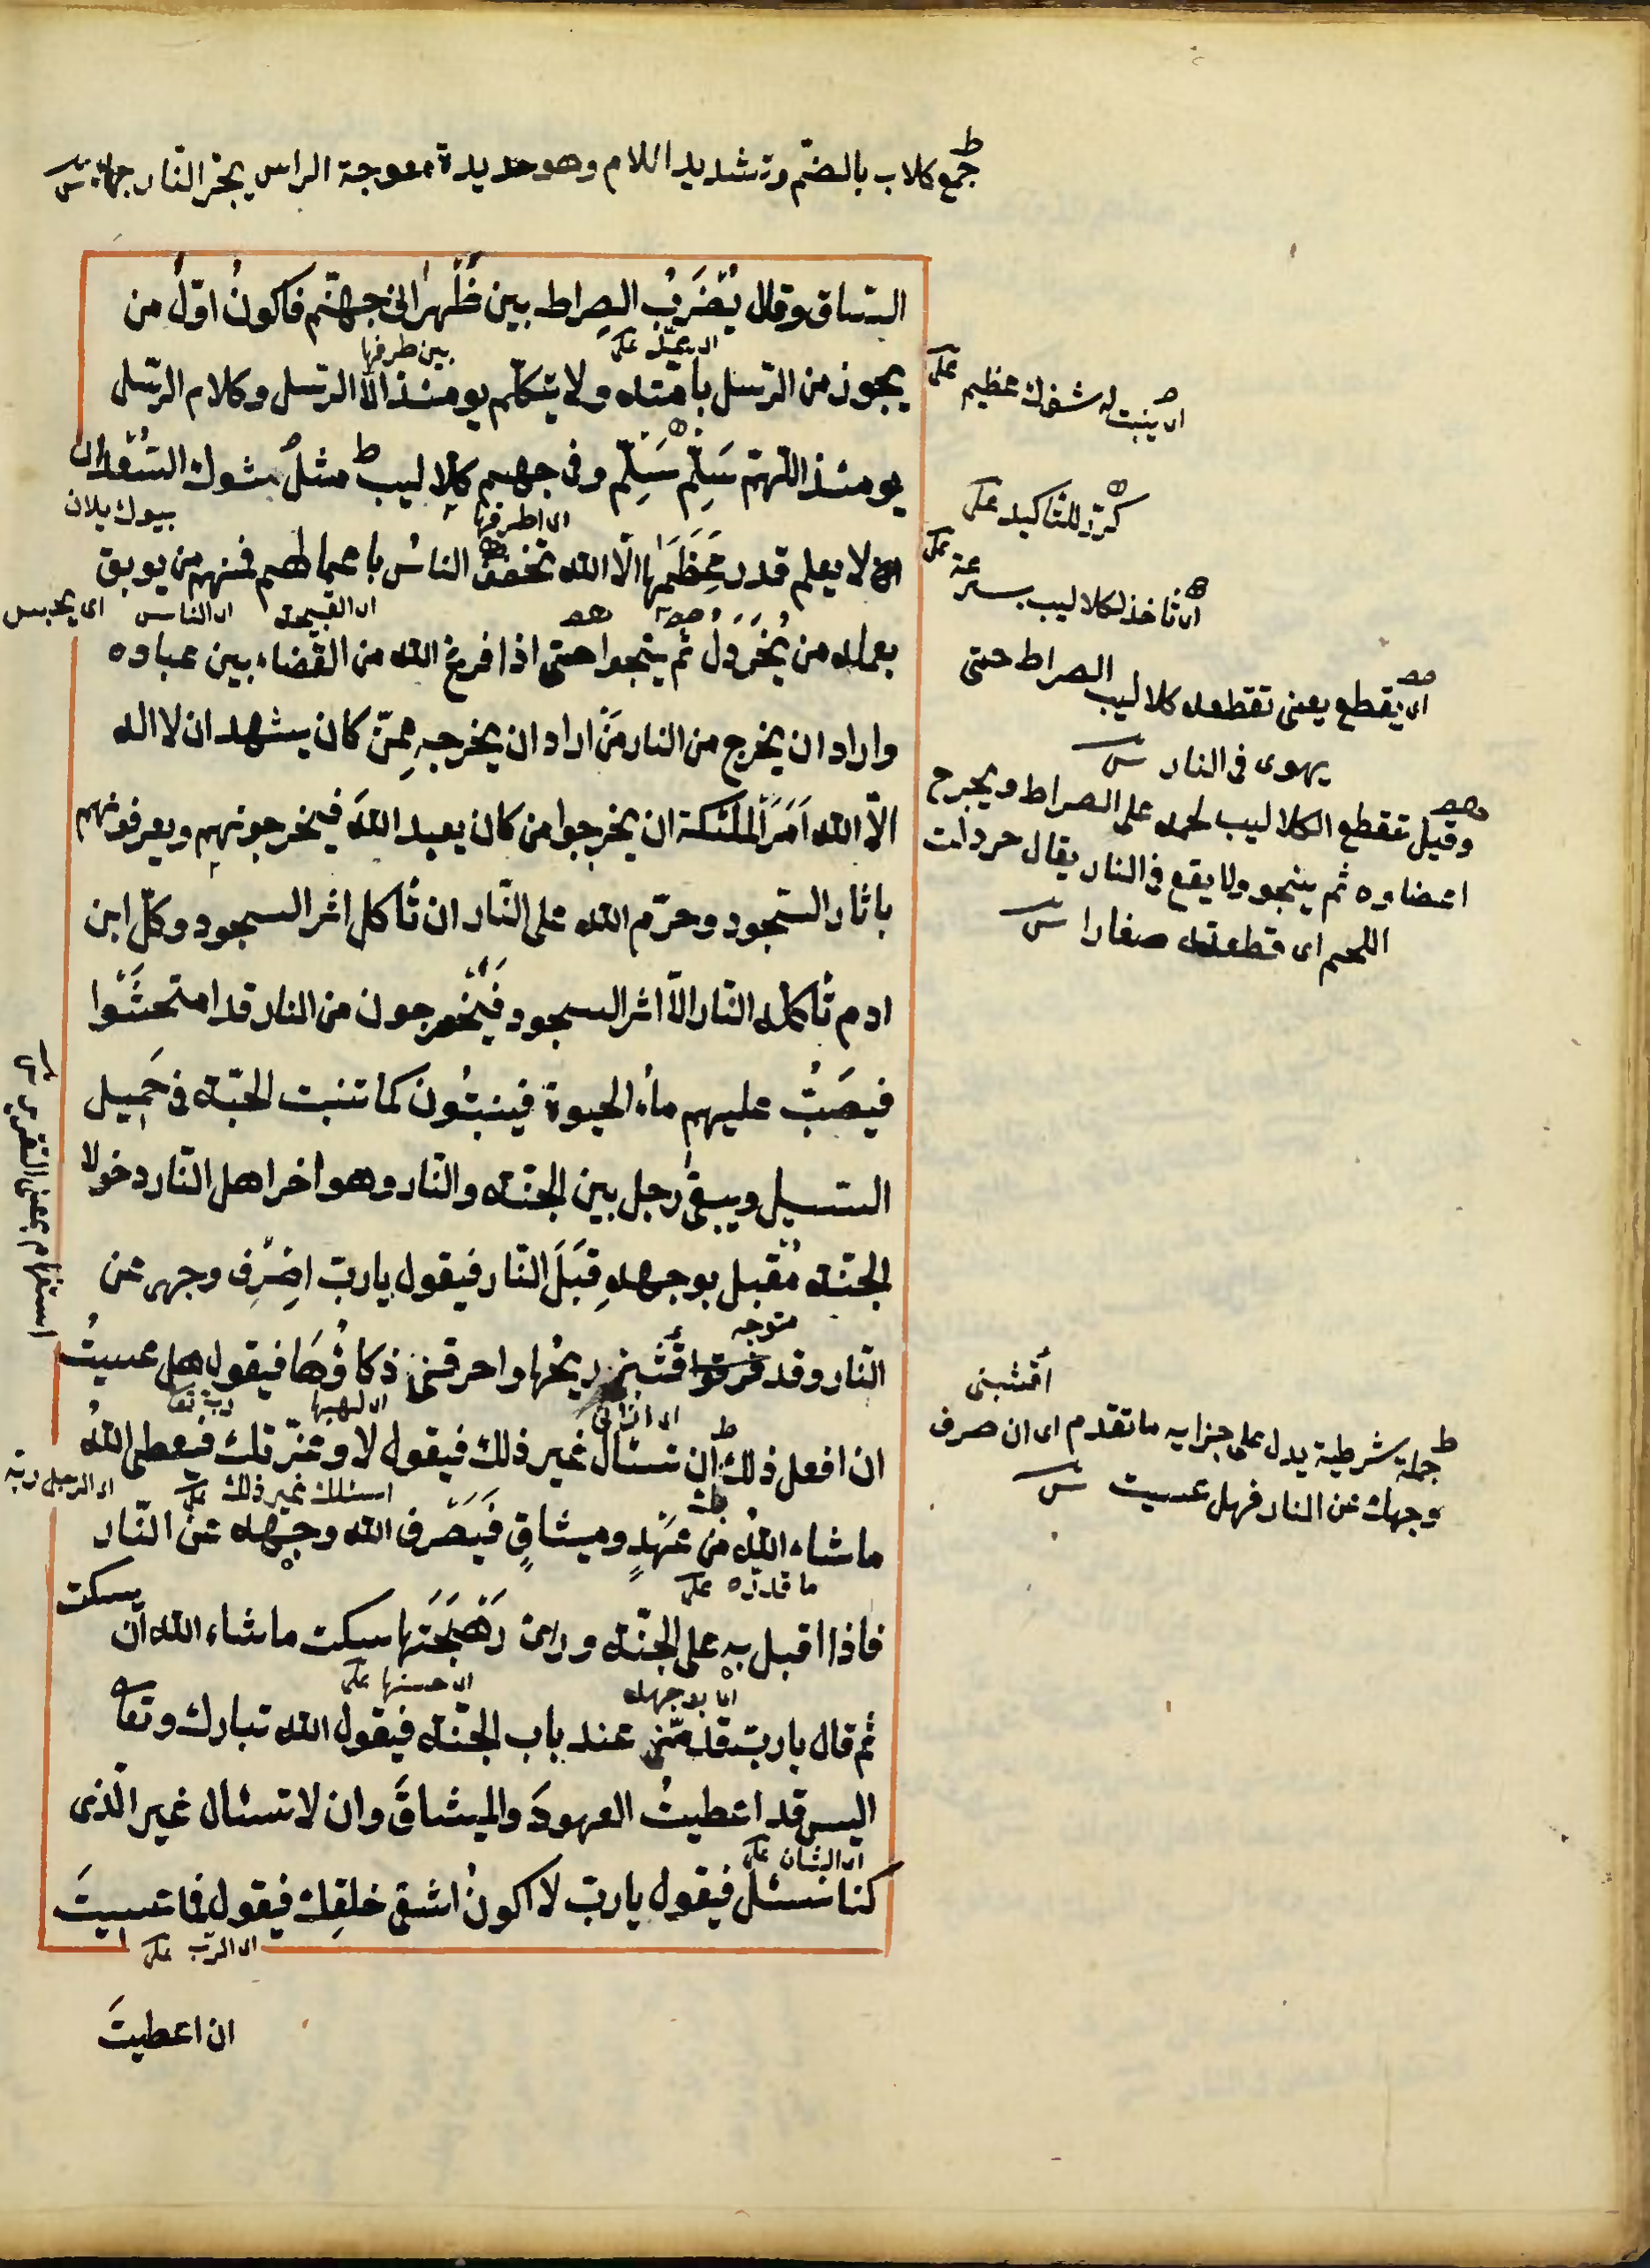 جمع كلاب بالضم وتشديد اللام وهو حديدة معوجة الراس يجر النار
الساق وقال يُضرَبُ الصراط بين ظَهرانى جهنم فاكونُ اوّلُ من
بين طرفها
يجوز من الرسل بامّته ولا يتكلّم يومئذ الّا الرسل وكلام الرسل
يومئذ اللّهمّ سَلِّم سَلِّم وفى جهنم كلاليب مثلُ شوك السّعدان
لا يعلم قدر عِظَمِها الّا الله تخطف الناسُ باعمالهم فمنهم من يوبق
اى القيمة اى الناس اى يحبس
بعمله من يُخَردَلُ ثم ينجوا حتى اذا فرغ الله من القضاء بين عباده
واراد ان يخرج من النار مَن اراد ان يخرجه مِمّن كان يشهد ان لا اله
الّا الله اَمَرَ الملئكة ان يخرجوا من كان يعبد اللهَ فيخرجونهم ويعرفونهم
باثار السّجود وحرّم الله على النّار ان تأكل اثر السجود وكلّ ابن
ادم تأكله النّار الّا اثر السجود فيُخرجون من النار قد امتحشوا
فيصَبُّ عليهم ماء الحيوة فينبتُون كما تنبت الحبّة فى حَمِيل
السّيل ويبقى رجل بين الجنّة والنّار وهو اخر اهل النّار دخولا
الجنّة مُقبل بوجهه قِبَلَ النّار فيقول يا ربّ اصْرِف وجهى عن
متوجه
النّار وقد قشبنى ريحُها واحرقنى ذكاؤُها فيقول هل عسيتُ
اى لهيبها
ان افعل ذلك ان تسئال غير ذلك فيقول لا وعزّتك فيعطى اللهُ
اسئلك غير ذلك
ما شاء اللهُ من عهْدٍ وميثاقٍ فيَصْرف الله وجهه عن النّار
ما قدره
فاذا اقبل به على الجنّة وراى بَهْجَتَها سكت ما شاء الله ان
يسكت
اى بوجهه اى حسنها
ثم قال يا ربّ قدّمنى عند باب الجنّة فيقول الله تبارك وتعا
اليس قد اعطيتُ العهودَ والميثاقَ وان لا تسئال غير الّذى
اى الشان
كنا نسئل فيقول يا ربّ لا اكونُ اشقى خلقِك فيقول فما عسيتَ
اى الرب
ان اعطيتَ
اى ينبت له شوك عظيم
كرّر للتاكيد
اى تأخذ الكلاليب بسرعة
اى يقطع يعنى تقطعه كلاليب الصراط حتى
يهوى فى النار
وقيل تقطع الكلاليب لحمه على الصراط ويجرح
اعضاوه ثم ينجو ولا يقع فى النار يقال خردلت
اللحم اى قطعته صغارا
اقشبنى
جملة شرطية يدل على جزايه ما تقدم اى ان صرف
وجهك عن النار فهل عسيت
استفهام بمعنى التقرير